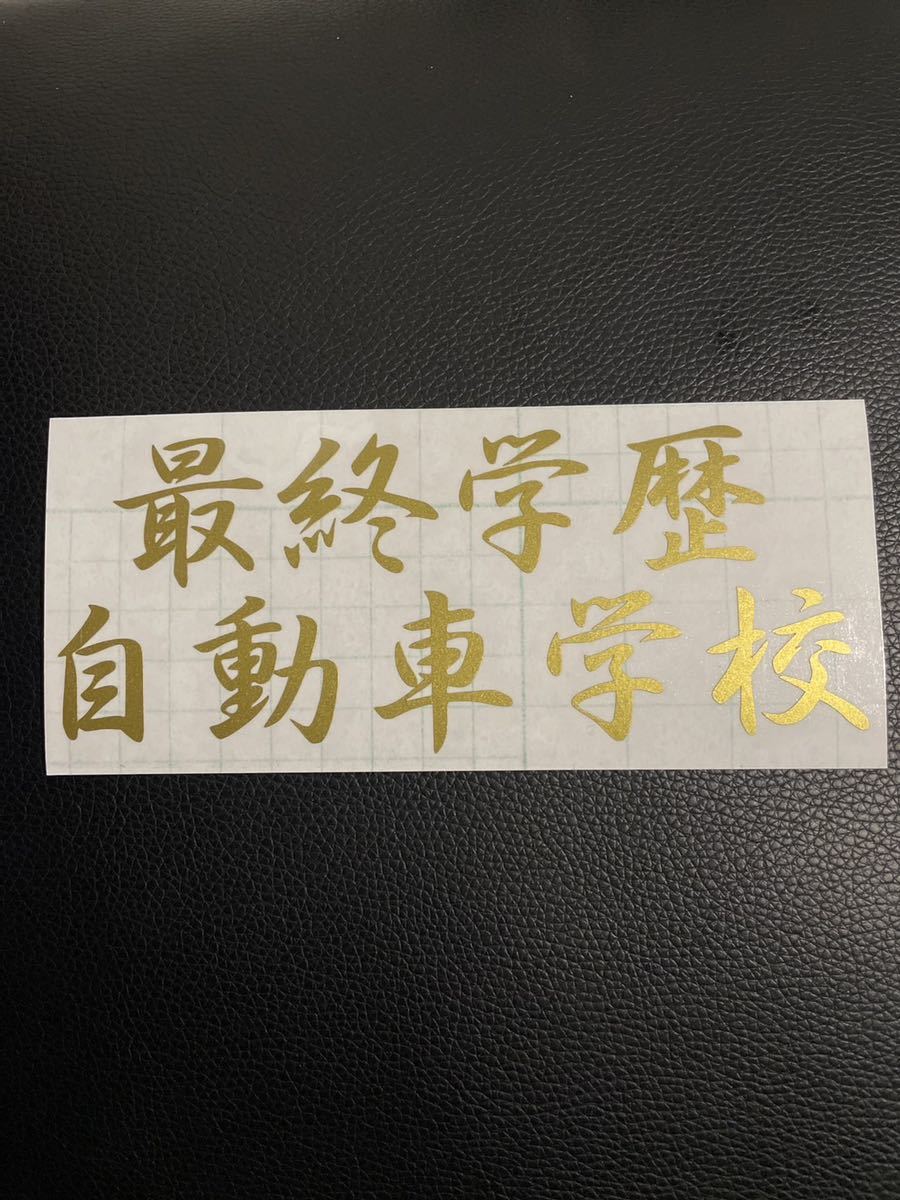 最終学歴
自動車学校